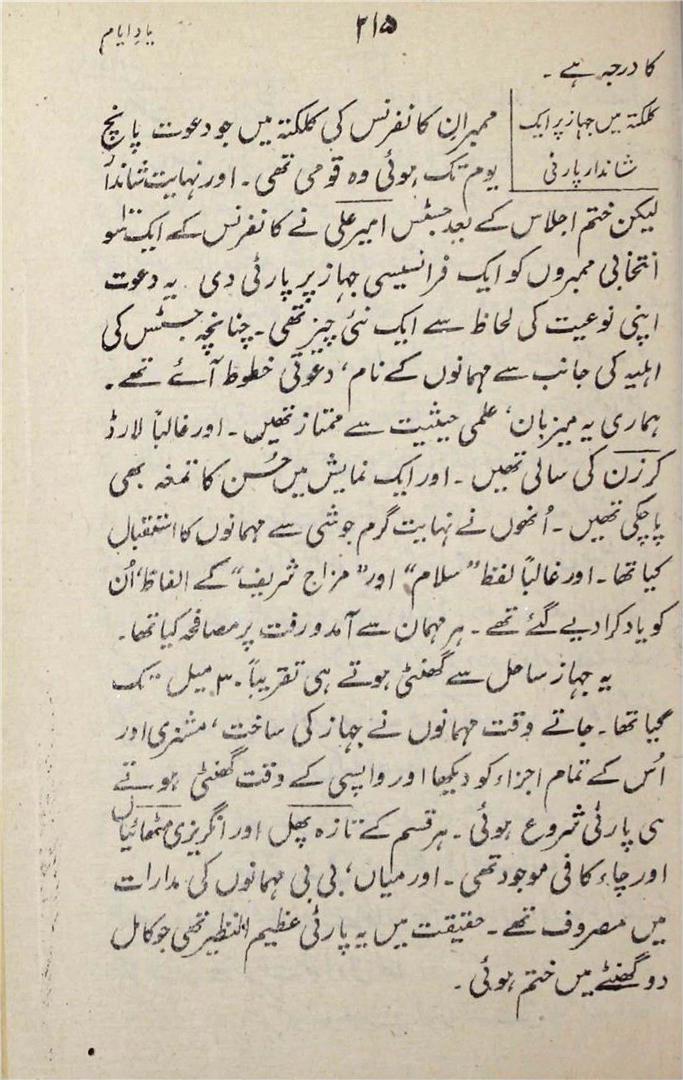 یادِ ایام
۲۱۵
کا درجہ ہے ۔
کلکتہ میں جہاز پر ایک
شاندار پارٹی
ممبرانِ کانفرنس کی کلکتہ میں جو دعوت پانچ
یوم تک ہوئی وہ قومی تھی ۔ اور نہایت شاندار
لیکن ختم اجلاس کے بعد جسٹس امیر علی نے کانفرنس کے ایک سو
انتخابی ممبروں کو ایک فرانسیسی جہاز پر پارٹی دی یہ دعوت
اپنی نوعیت کی لحاظ سے ایک نئی چیز تھی ۔ چنانچہ جسٹس کی
اہلیہ کی جانب سے مہمانوں کے نام، دعوتی خطوط آئے تھے ۔
ہماری یہ میزبان، علمی حیثیت سے ممتاز تھیں ۔ اور غالباً لارڈ
کرزن کی سالی تھیں ۔ اور ایک نمایش میں حُسن کا تمغہ بھی
پا چکی تھیں ۔ اُنھوں نے نہایت گرم جوشی سے مہمانوں کا استقبال
کیا تھا ۔ اور غالباً لفظ "سلام" اور "مزاج شریف" کے الفاظ، اُن
کو یاد کرا دیے گئے تھے ۔ ہر مہمان سے آمد و رفت پر مصافحہ کیا تھا ۔
یہ جہاز ساحل سے گھنٹی ہوتے ہی تقریباً ۳۰ میل تک
گیا تھا ۔ جاتے وقت مہمانوں نے جہاز کی ساخت، مشنری اور
اُس کے تمام اجزاء کو دیکھا اور واپسی کے وقت گھنٹی ہوتے
ہی پارٹی شروع ہوئی ۔ ہر قسم کے تازہ پھل اور انگریزی مٹھائیاں
اور چاء کافی موجود تھی ۔ اور میاں، بی بی مہمانوں کی مدارات
میں مصروف تھے ۔ حقیقت میں یہ پارٹی عظیم النظیر تھی جو کامل
دو گھنٹے میں ختم ہوئی ۔